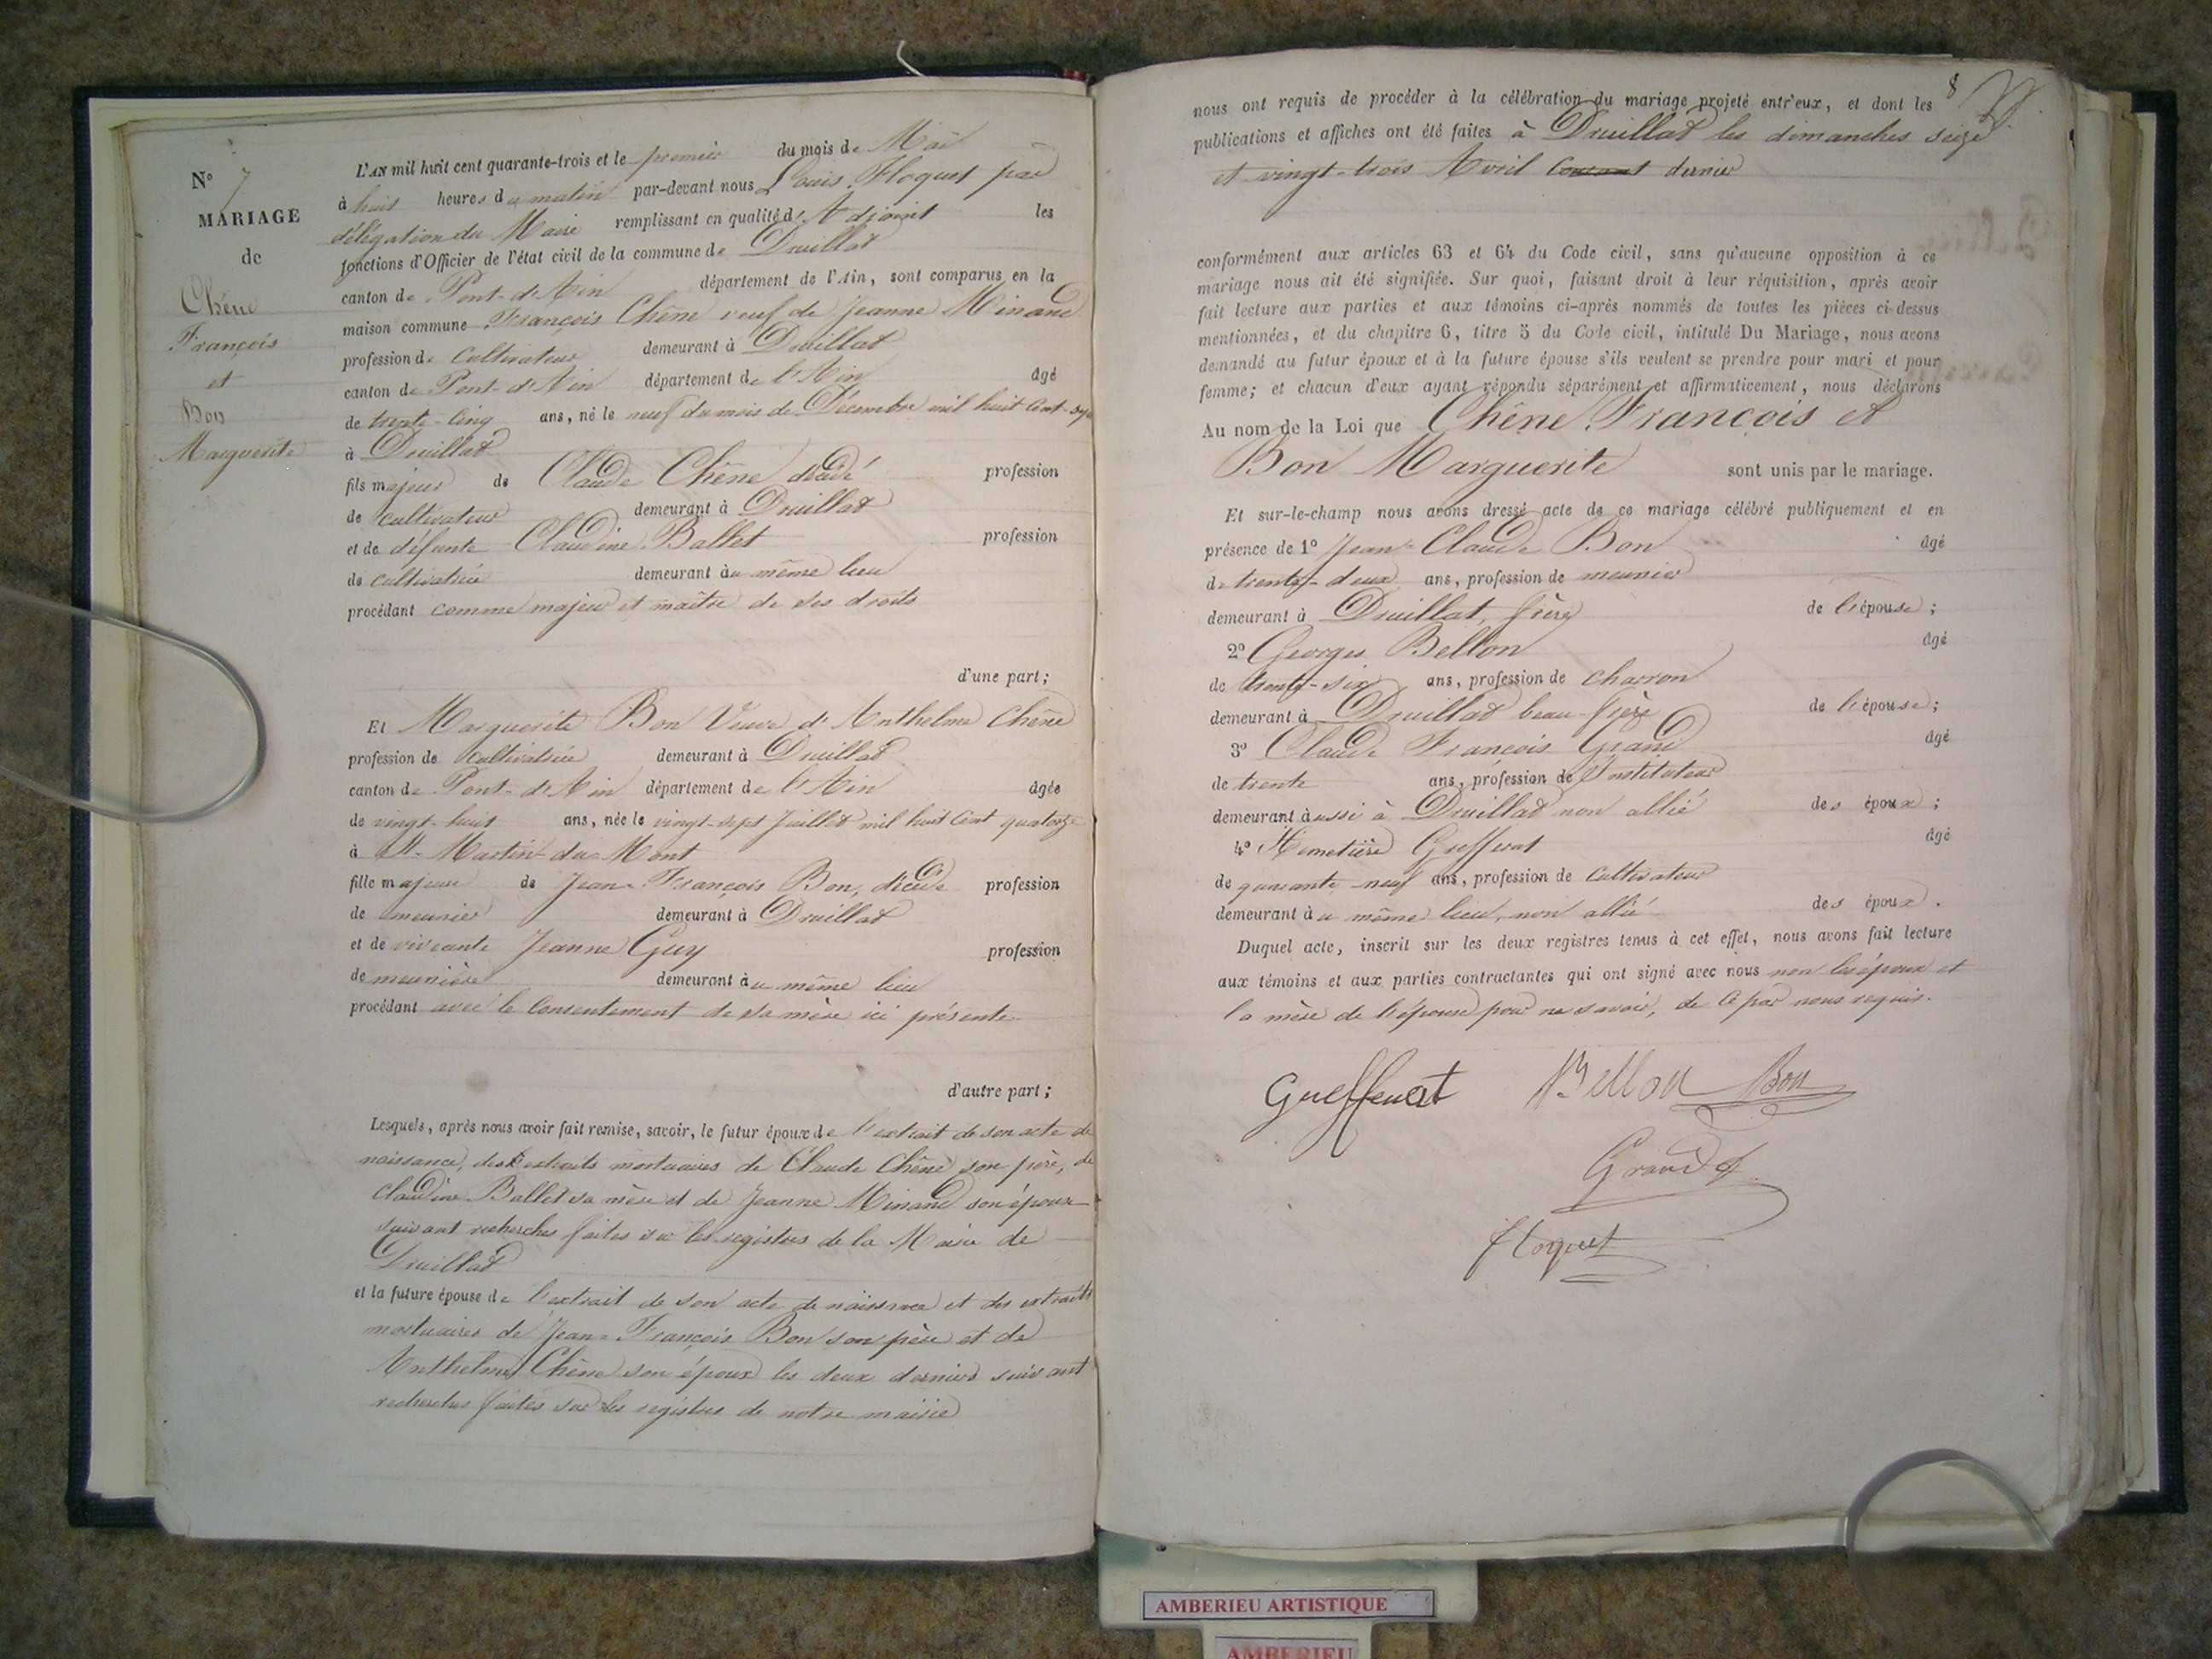 N° 7
MARIAGE
de
Chêne
François
et
Bon
Marguerite
L'AN mil huit cent quarante-trois et le premier du mois de Mai
à huit heures du matin par-devant nous Louis Floquet par
délégation du Maire remplissant en qualité d'Adjoint les
fonctions d'Officier de l'état civil de la commune de Druillat
canton de Pont-d'Ain département de l'Ain, sont comparus en la
maison commune François Chêne veuf de Jeanne Minand
profession de Cultivateur demeurant à Druillat
canton de Pont-d'Ain département de l'Ain âgé
de trente-cinq ans, né le neuf du mois de Décembre mil huit cent sept
à Druillat
fils majeur de Claude Chêne décédé profession
de cultivateur demeurant à Druillat
et de défunte Claudine Ballet profession
de cultivatrice demeurant au même lieu
procédant comme majeur et maître de ses droits
d'une part;
Et Marguerite Bon Veuve d'Anthelme Chêne
profession de cultivatrice demeurant à Druillat
canton de Pont-d'Ain département de l'Ain âgée
de vingt-huit ans, née le vingt-sept Juillet mil huit cent quatorze
à St-Martin-du-Mont
fille majeure de Jean-François Bon, décédé profession
de meunier demeurant à Druillat
et de vivante Jeanne Guy profession
de meunière demeurant au même lieu
procédant avec le consentement de sa mère ici présente
d'autre part;
Lesquels, après nous avoir fait remise, savoir, le futur époux de l'extrait de son acte de
naissance, des extraits mortuaires de Claude Chêne son père, de
Claudine Ballet sa mère et de Jeanne Minand son épouse
suivant recherches faites sur les registres de la Mairie de
Druillat
et la future épouse de l'extrait de son acte de naissance et des extraits
mortuaires de Jean-François Bon son père et de
Anthelme Chêne son époux les deux derniers suivant
recherches faites sur les registres de notre mairie
8
nous ont requis de procéder à la célébration du mariage projeté entr'eux, et dont les
publications et affiches ont été faites à Druillat les dimanches seize
et vingt-trois Avril Courant dernier
conformément aux articles 63 et 64 du Code civil, sans qu'aucune opposition à ce
mariage nous ait été signifiée. Sur quoi, faisant droit à leur réquisition, après avoir
fait lecture aux parties et aux témoins ci-après nommés de toutes les pièces ci-dessus
mentionnées, et du chapitre 6, titre 5 du Code civil, intitulé Du Mariage, nous avons
demandé au futur époux et à la future épouse s'ils veulent se prendre pour mari et pour
femme; et chacun d'eux ayant répondu séparément et affirmativement, nous déclarons
Au nom de la Loi que Chêne François et
Bon Marguerite sont unis par le mariage.
Et sur-le-champ nous avons dressé acte de ce mariage célébré publiquement et en
présence de 1° Jean-Claude Bon âgé
de trente-deux ans, profession de meunier
demeurant à Druillat, frère de l'épouse;
2° Georges Bellon âgé
de trente-six ans, profession de charron
demeurant à Druillat beau-frère de l'épouse;
3° Claude François Grand âgé
de trente ans, profession de Instituteur
demeurant aussi à Druillat non allié des époux;
4° Gueffenat âgé
de quarante-neuf ans, profession de Cultivateur
demeurant au même lieu, non allié des époux.
Duquel acte, inscrit sur les deux registres tenus à cet effet, nous avons fait lecture
aux témoins et aux parties contractantes qui ont signé avec nous non les époux et
la mère de l'épouse pour ne savoir, de ce par nous requis.
Gueffenat Bellon Bon
Grand
Floquet
AMBERIEU ARTISTIQUE
AMBERIEU